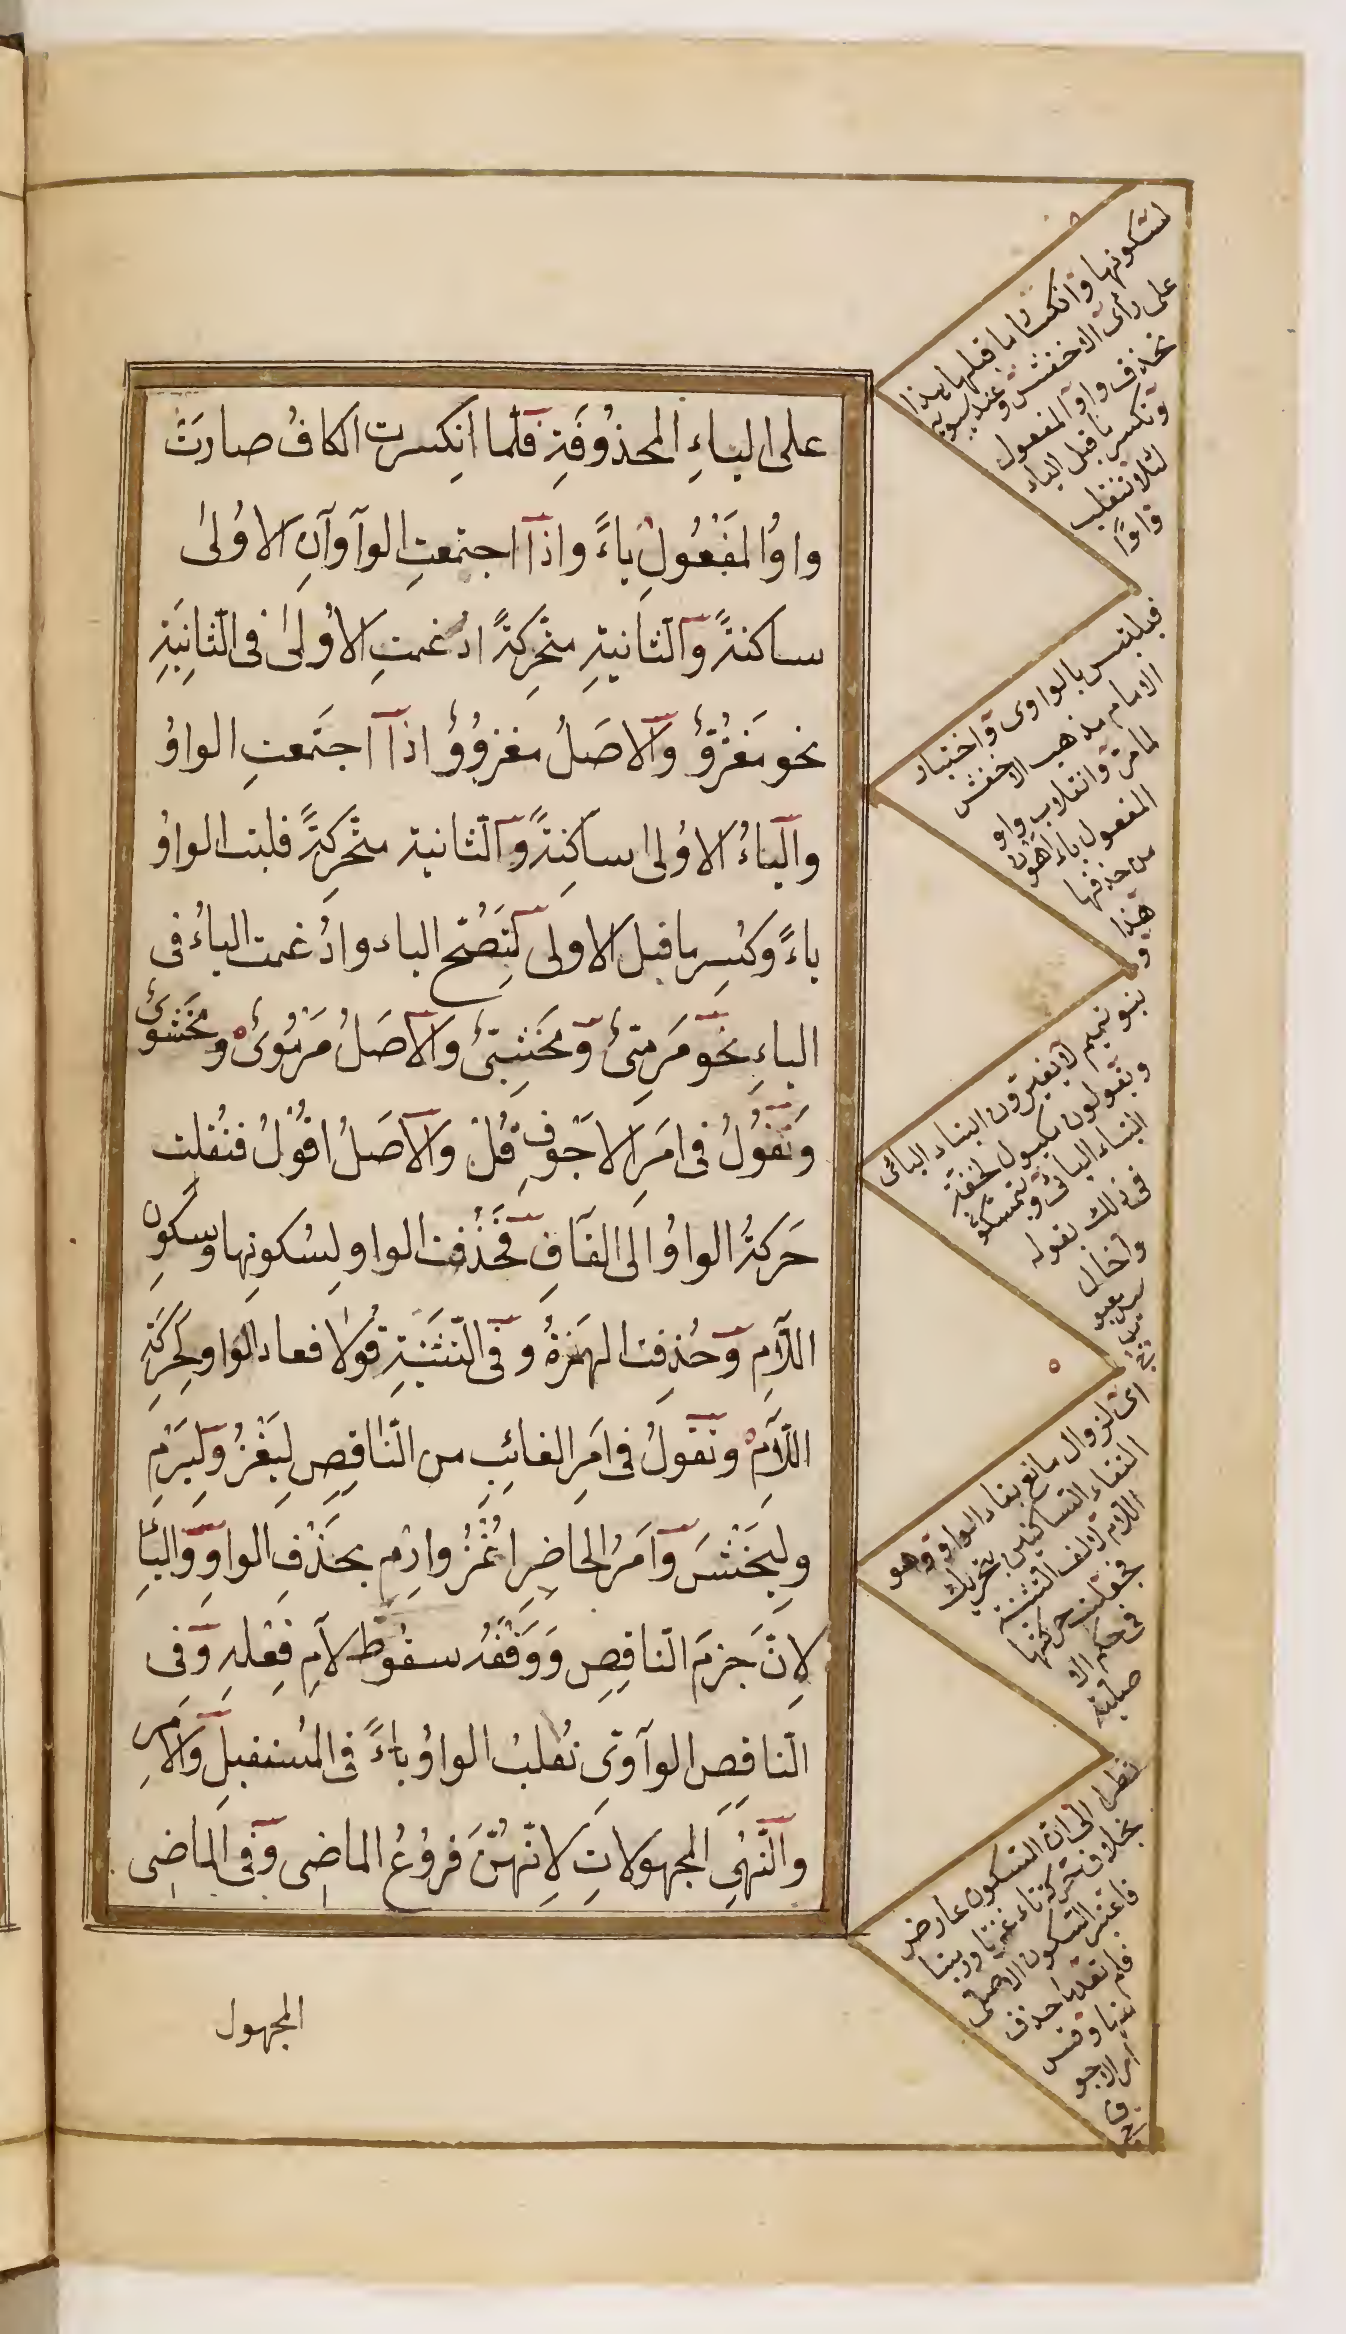 على الياءِ المحذُوفَةِ فلّما انِكسرتِ الكافُ صارَتْ
واوُ المَفْعُولِ ياءً واذا اجتمعتِ الواوانِ الاُولىٰ
ساكنةً والثانيةِ متحَرِكةً ادُغمتِ الاُولىٰ فى الثّانِيَةِ
نحو مَغزُوٌّ والاصَلُ مغزوُوٌ اذا اجتَمعتِ الواوُ
والياءُ الاُولىٰ ساكِنةً والثانية متحَرِكةً قلبت الواوُ
ياءً وكُسِر ما قبل الاولى لِتَصُحّ الياء وادُغمت الياءُ فى
الياءِ نحَو مَرمِىٌّ ومَخشِىٌّ والاصَلُ مَرْمُوىٌ ومَخشوىٌ
وَتَقُولُ فى امَرِ الاجَوفِ قُلْ والاصَلُ اقوُلْ فنُقلت
حَركةُ الواوُ الى القافِ فحَذُفت الواو لِسُكونِها وسكونِ
اللّامِ وحُذِفت الهَمزةُ وفى التّثنيَةِ قوُلا فعاد الواو لِحَركَةِ
اللّامِ وتقوَلُ فى امَرِ الغائِبِ من النّاقِصِ لِيَغْزُ ولِيَرْمِ
ولِيَخْشَ وامَرُ الحاضِرِ اغْزُ وارْمِ بحَذْفِ الواوِ والياِ
لاِنَّ جَزمَ النّاقِصِ وَوَقْفَهُ سقُوطُ لامِ فِعْلِهِ وفى
النّاقِصِ الواوىّ تقُلبُ الواوُ ياءً فى المُستقبلِ والامَرِ
والنّهْىِ المجهولاتِ لاِنّهُنَّ فرَوُعُ الماضِى وفى الماضِى
المجهول
لسكونها وانكسار ما قبلها هذا
على رأى الاخفش وعند سيبويه
تحذف واو المفعول
وتكسر ما قبل الياء
لئلا تنقلب
واوًا
فيلتبس بالواوى واختيار
الامام مذهب الاخفش
لما مرّ وانقلاب واو
المفعول ياء اهون
من حذفها
هذا
و
بنو تميم لا يغيّرون البناء اليائى
ويقولون مكيول لخفة
البناء اليائى وتمسكوا
فى ذلك بقوله
واخال
اى لزوال مانع بقاء الواو وهو
التقاء الساكنين بتحريك
اللام والف التثنية
فجعلت حركتها
فى حكم الا
صلية
نظرا الى ان السكون عارض
بخلاف حركة تاء غزتا ورمتا
فاعتبر السكون الاصلى
فلم تعد ما حذف
منها وقس
امر الاجو
ف